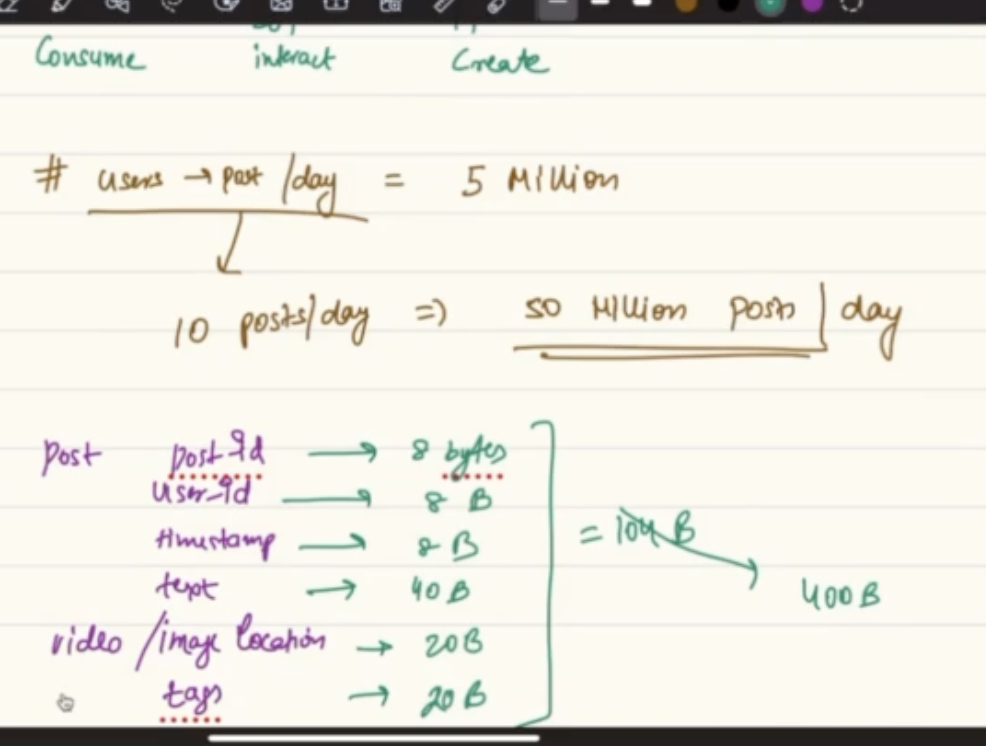 Consume interact Create
# users → post /day = 5 Million
10 posts/day => 50 Million posts / day
Post post_id → 8 bytes
user_id → 8 B
timestamp → 8 B
text → 40 B = 104 B → 400 B
video /image location → 20 B
tags → 20 B